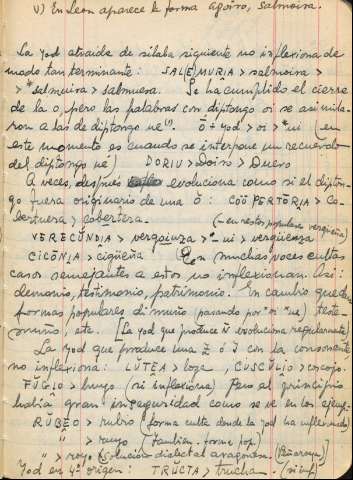 v) En Leon aparece la forma agoiro, salmoira.
La yod atraida de silaba siguiente no inflexiona de
modo tan terminante: SALEMURIA > salmoira >
> *salmuira > salmuera. Se ha cumplido el cierre
de la o, pero las palabras con diptongo oi se asimila-
ron a las de diptongo ue (1). Ŏ + yod > oi > *ui (en
este momento es cuando se interpone un recuerdo
del diptongo ué) DORIU > Doiro > Duero
A veces, después evoluciona como si el dipton-
go fuera originario de una ŏ: COŌPERTŌRIA > co-
bertuera > cobertera.
(-en restos populares vergüeña)
VERECŬNDIA > vergoinza > *-ui > vergüenza
CICŌNIA > cigüeña (Con muchas voces cultas
casos semejantes a estos no inflexionan. Asi:
demonio, testimonio, patrimonio. En cambio quedan
formas populares dimuño (pasando por oi ue), testi-
muño, etc. [La yod que produce Ñ evoluciona regularmente]
La yod que produce una Z o J con la consonante
no inflexiona: LŬTEA > loza, CUSCŬLIO > coscojo.
FŬGIO > huyo (si inflexiona) Pero al principio
había gran inseguridad como se ve en los ejempl-
RŬBEO > rubio (forma culta donde la yod ha inflexionado)
" > ruyo (tambien forma pop)
" > royo (solución dialectal aragonesa) (Peñaroya)
Yod en 4º origen: TRŬCTA > trucha. (si inf)